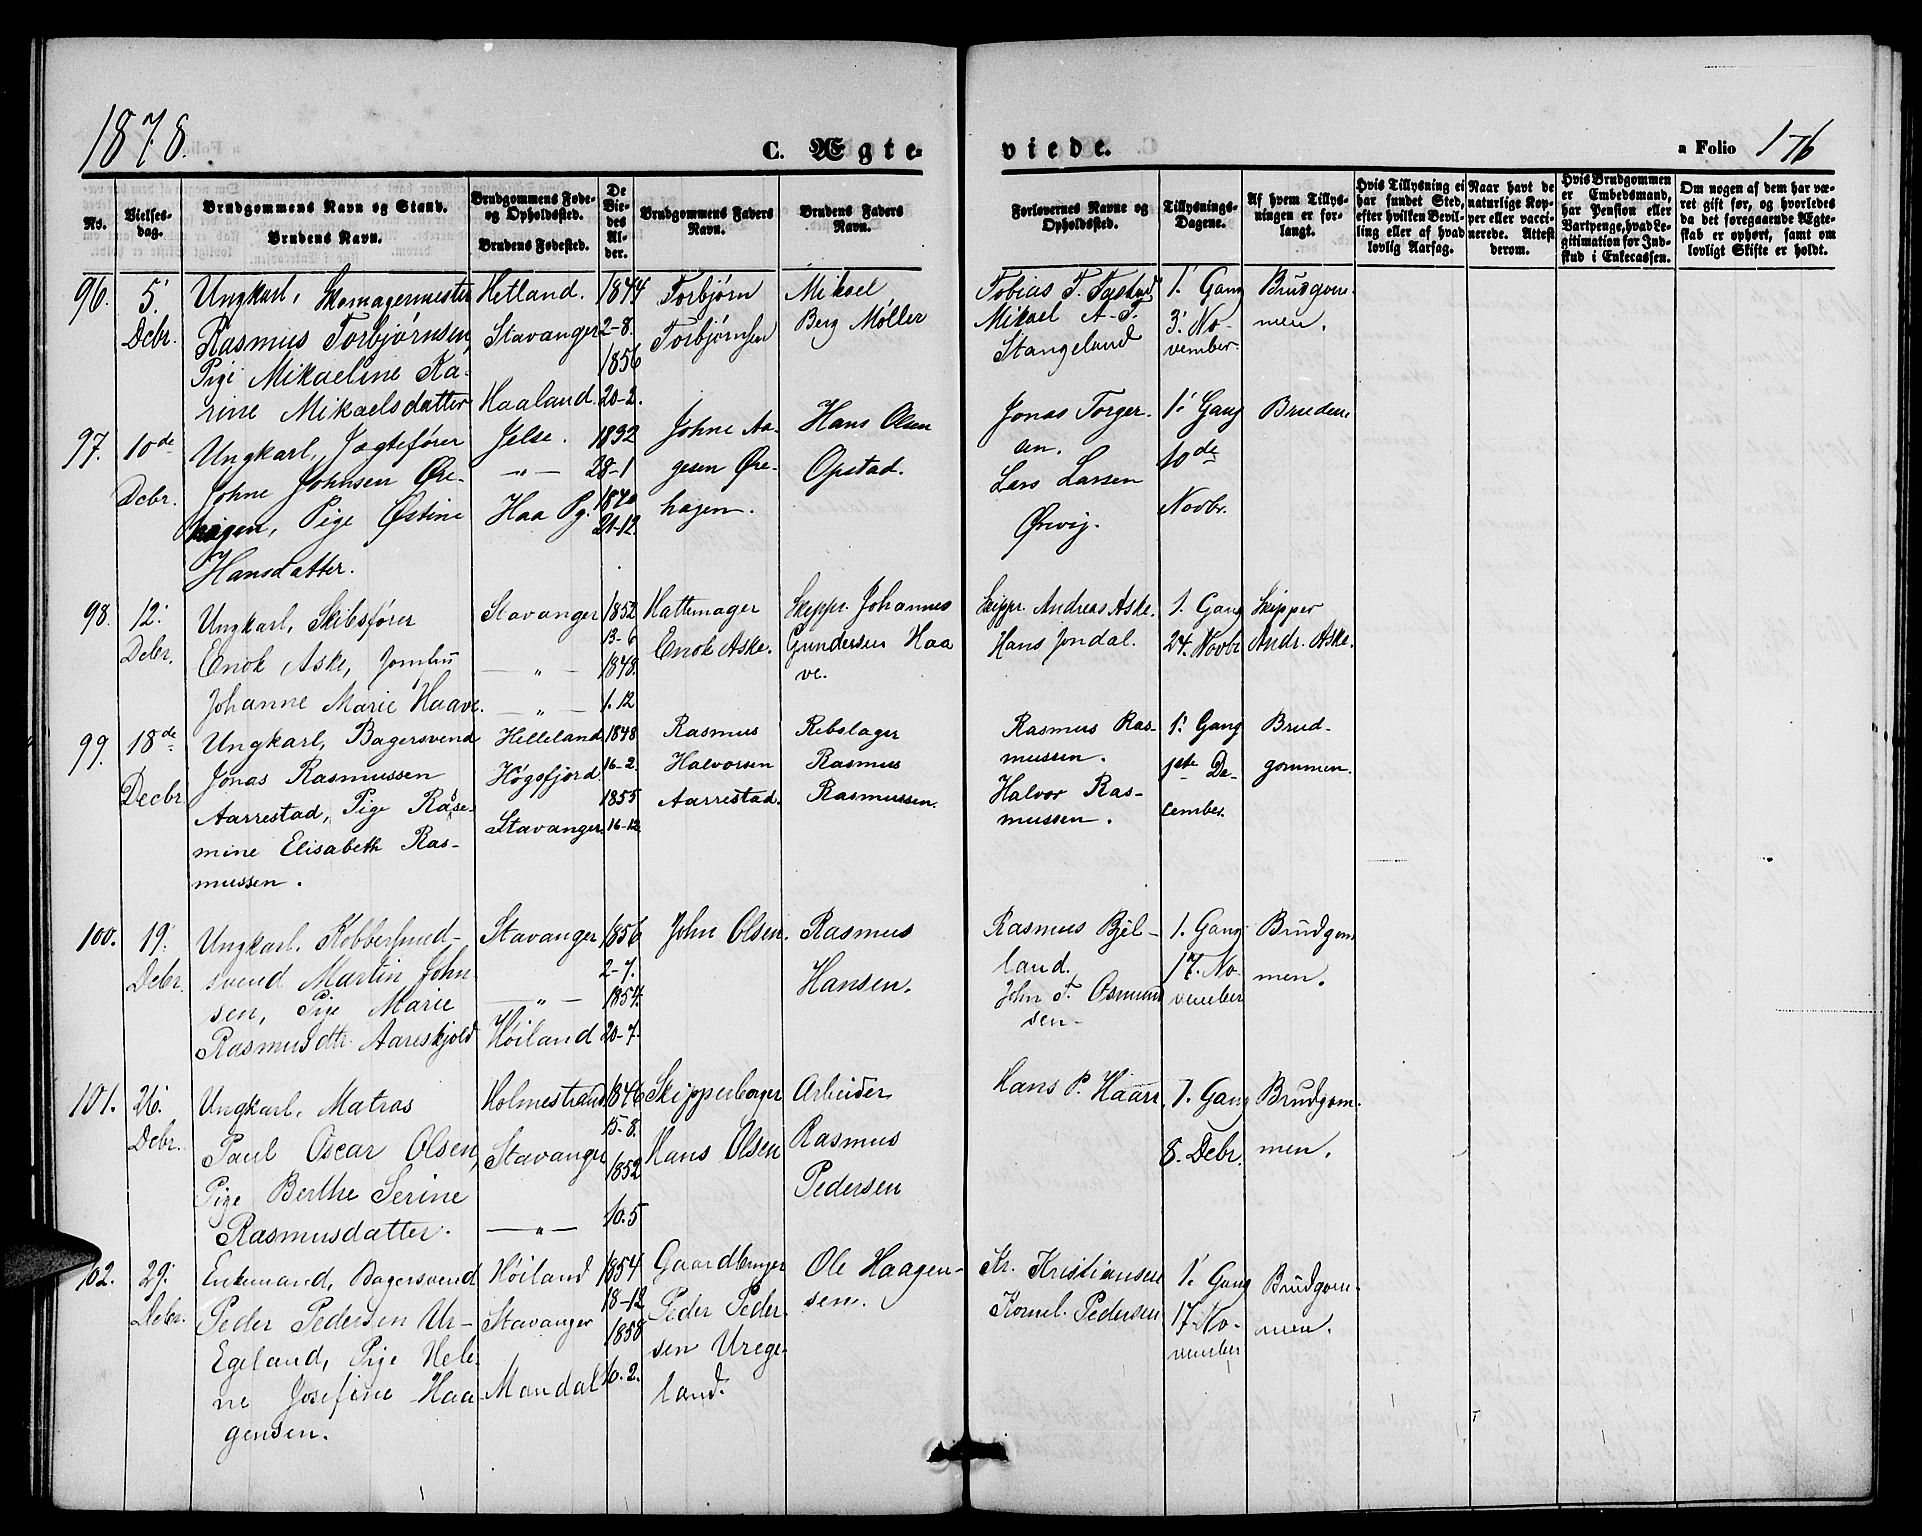 1878.
C. Ægte-
viede.
a Folio 176
No.
Vielses-
dag.
Brudgommens Navn og Stand.
Brudens Navn.
Brudgommens Føde-
og Opholdssted.
Brudens Fødested.
De
Vie-
des
Al-
der.
Brudgommens Faders
Navn.
Brudens Faders
Navn.
Forlovernes Navne og
Opholdssted.
Tillysnings-
Dagene.
Af hvem Tillys-
ningen er for-
langt.
Hvis Tillysning ei
har fundet Sted,
efter hvilken Bevil-
ling eller af hvad
lovlig Aarsag.
Naar havt de
naturlige Kop-
per eller vacci-
nerede. Attest
derom.
Hvis Brudgommen
er Embedsmand,
har Pension eller
Vartpenge, hvad Le-
gitimation for Ind-
skud i Enkecassen.
Om nogen af dem har væ-
ret gift før, og hvorledes
da det foregaaende Ægte-
skab er ophørt, samt om
lovligt Skifte er holdt.
96.
5'
Debr.
Ungkarl, Skomagermester
Rasmus Torbjørnsen,
Pige Mikaeline Ka-
rine Mikaelsdatter
Hetland.
Stavanger
Haaland.
1844
2-8.
1856
20-2.
Torbjørn
Torbjørnsen
Mikael
Berg Møller
Tobias T. Tastad
Mikael A. T.
Stangeland
1' Gang
3' No-
vember.
Brudgom-
men.
97.
10de
Debr.
Ungkarl, Jagtefører
Johne Johnsen Øre-
hagen, Pige Østine
Hansdatter.
Jelse.
—"—
Haa Pg.
1832
28-1
1840
21-12.
Johne Aa-
gesen Øre-
hagen.
Hans Olsen
Opstad.
Jonas Torger-
sen.
Lars Larsen
Ørevig.
1' Gang
10de
Novbr.
Bruden
98.
12'
Debr.
Ungkarl, Skibsfører
Enok Aske, Jomfru
Johanne Marie Haave.
Stavanger
—"—
—"—
1852
13-6
1848.
1.12
Hattemager
Enok Aske.
Skippr. Johannes
Gundersen Haa
ve.
Skippr. Andreas Aske.
Hans Jondal.
1. Gang
24. Novbr
Skipper
Andr. Aske.
99.
18de
Decbr
Ungkarl, Bagersvend
Jonas Rasmussen
Aarrestad, Pige Rase-
mine Elisabeth Ras-
mussen.
Helleland
Høgsfjord.
Stavanger
1848
16-2.
1855
16-12
Rasmus
Halvorsen
Aarrestad.
Rebslager
Rasmus
Rasmussen.
Rasmus Ras-
mussen.
Halvor Ras-
mussen.
1' Gang
1ste De-
cember.
Brud-
gommen.
100.
19'
Debr.
Ungkarl. Kobbersmed-
svend Martin John-
sen, Pige Marie
Rasmusdtr. Aareskjold
Stavanger
—"—
Høiland
1856
2-7.
1854.
20-7.
John Olsen.
Rasmus
Hansen.
Rasmus Bjel-
land.
John T. Osmund
sen-
1. Gang
17. No-
vember
Brudgom
men.
101.
26'
Debr.
Ungkarl, Matros
Paul Oscar Olsen,
Pige Berthe Serine
Rasmusdatter.
Holmestrand
Stavanger
—"—
1846
15-8.
1852
10.5
Skipperborger
Hans Olsen
Arbeider
Rasmus
Pedersen
Hans P. Haarr.
1. Gang
8. Debr.
Brudgom-
men.
102.
29'
Debr.
Enkemand, Bagersvend
Peder Pedersen Ur-
Egeland, Pige Hele-
ne Josefine Haa-
gensen.
Høiland
Stavanger
Mandal
1854
18-12
1858
10-2.
Gaardbruger
Peder Peder-
sen Urege-
land.
Ole Haagen-
sen.
Kr. Kristiansen
Kornel. Pedersen
1' Gang
17. No-
vember
Brudgom-
men.